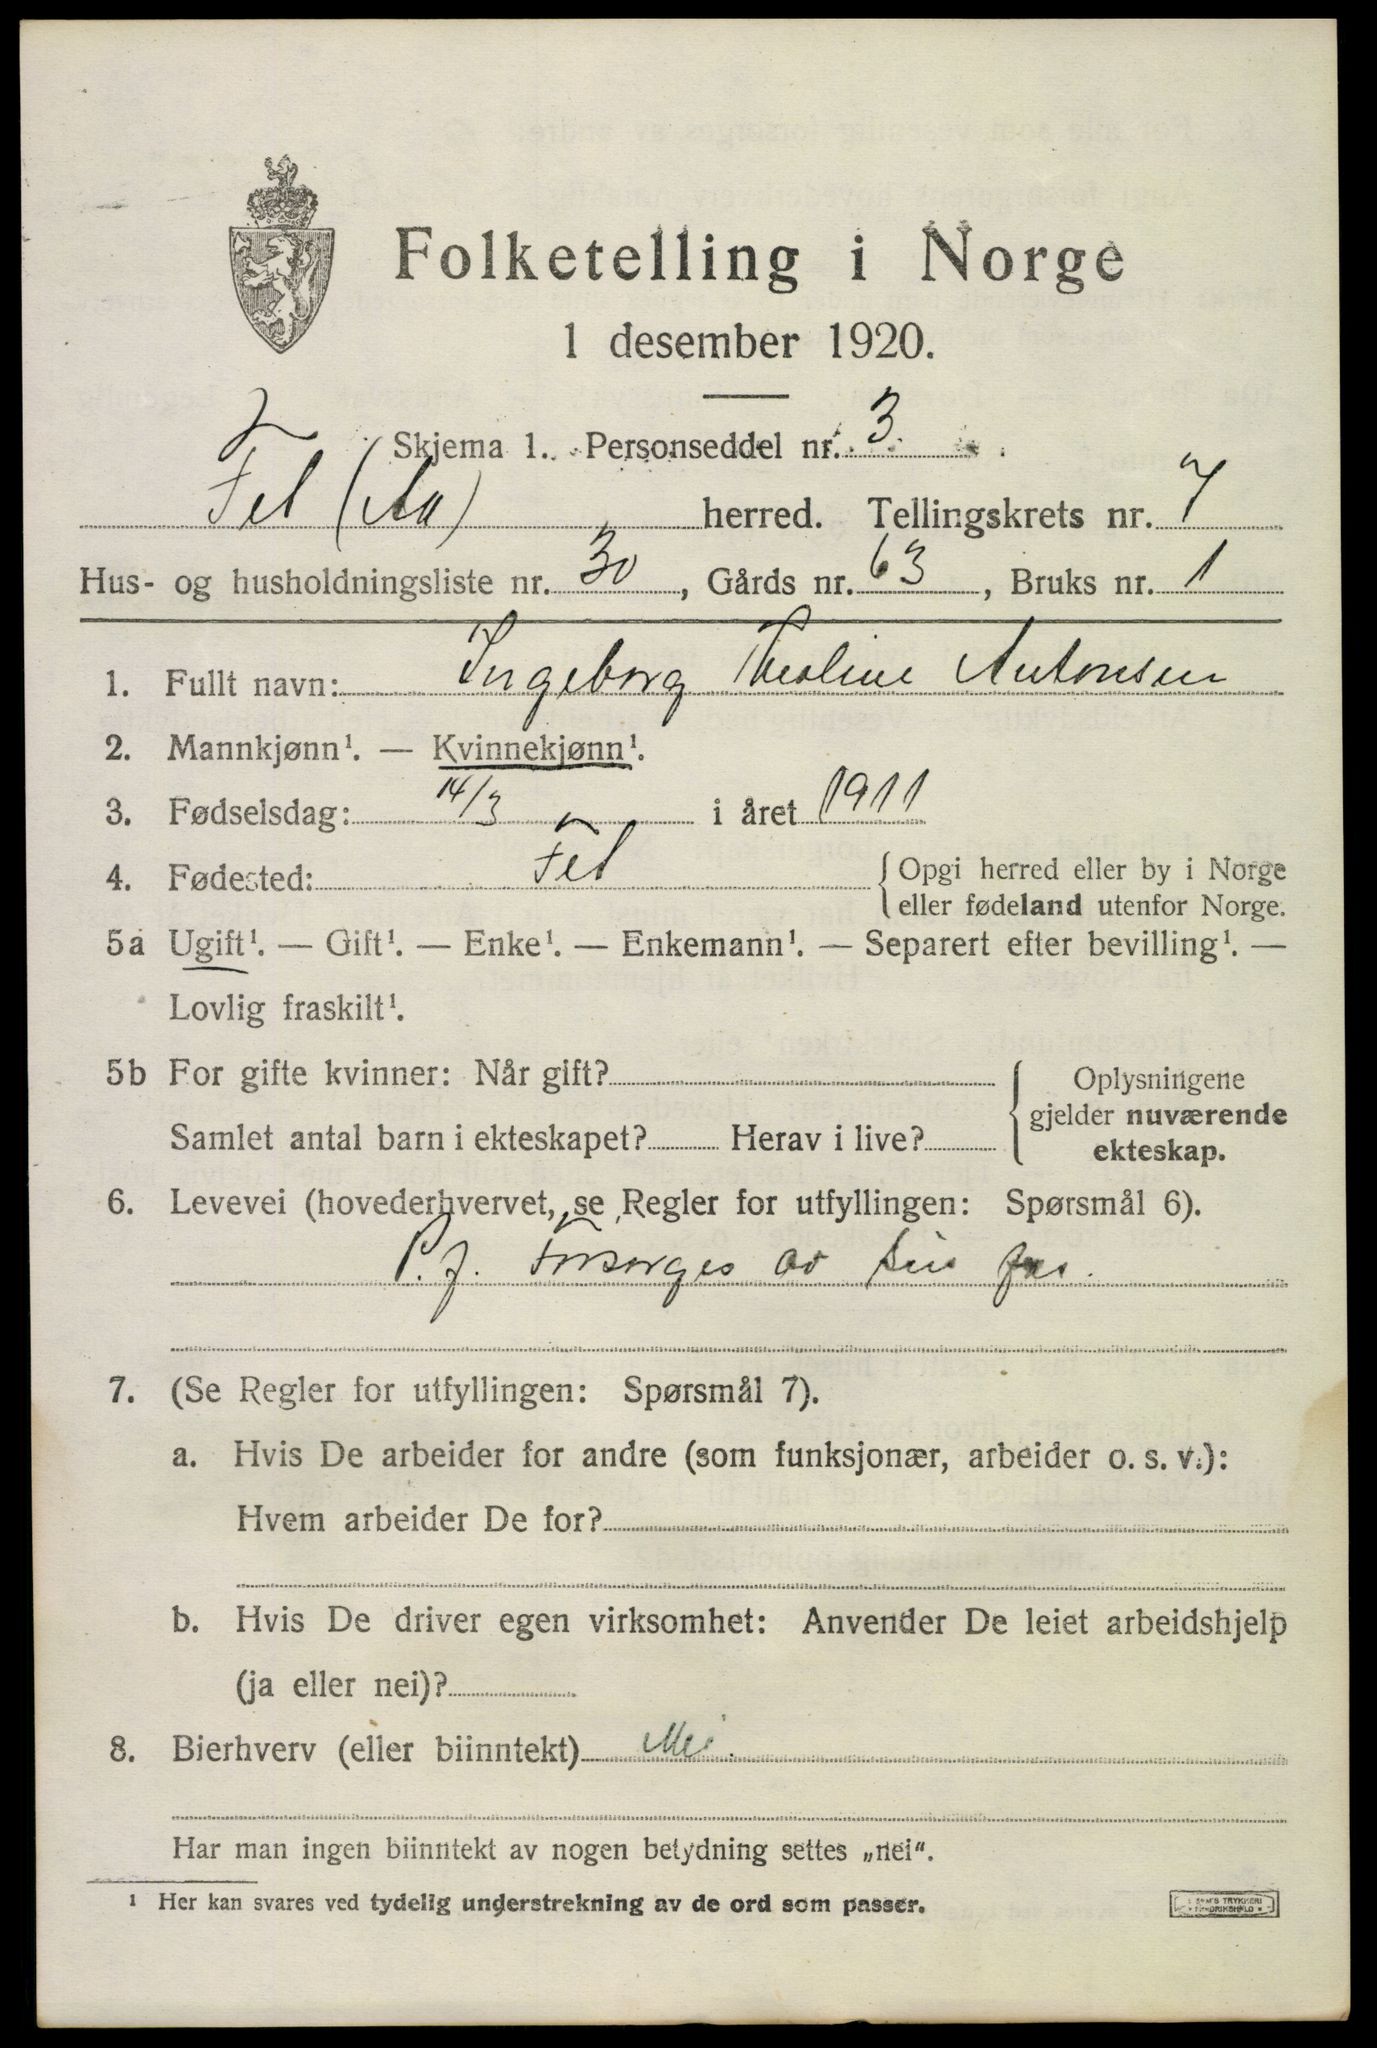 Folketelling i Norge
1 desember 1920.
Skjema 1. Personseddel nr. 3.
Fet (Aa) herred. Tellingskrets nr. 7
Hus- og husholdningsliste nr. 30, Gårds nr. 63, Bruks nr. 1
1. Fullt navn: Ingeborg Theoline Antonsen
2. Mannkjønn¹. — Kvinnekjønn¹.
3. Fødselsdag: 14/3 i året 1911
4. Fødested: Fet {Opgi herred eller by i Norge
eller fødeland utenfor Norge.
5a Ugift¹. — Gift¹. — Enke¹. — Enkemann¹. — Separert efter bevilling¹. —
Lovlig fraskilt¹.
5b For gifte kvinner: Når gift? Oplysningene
gjelder nuværende
Samlet antal barn i ekteskapet? Herav i live? ekteskap.
6. Levevei (hovederhvervet, se Regler for utfyllingen: Spørsmål 6).
P. f. Forsørges av sin far.
7. (Se Regler for utfyllingen: Spørsmål 7).
a. Hvis De arbeider for andre (som funksjonær, arbeider o. s. v.):
Hvem arbeider De for?
b. Hvis De driver egen virksomhet: Anvender De leiet arbeidshjelp
(ja eller nei)?
8. Bierhverv (eller biinntekt) Nei.
Har man ingen biinntekt av nogen betydning settes „nei".
¹ Her kan svares ved tydelig understrekning av de ord som passer.